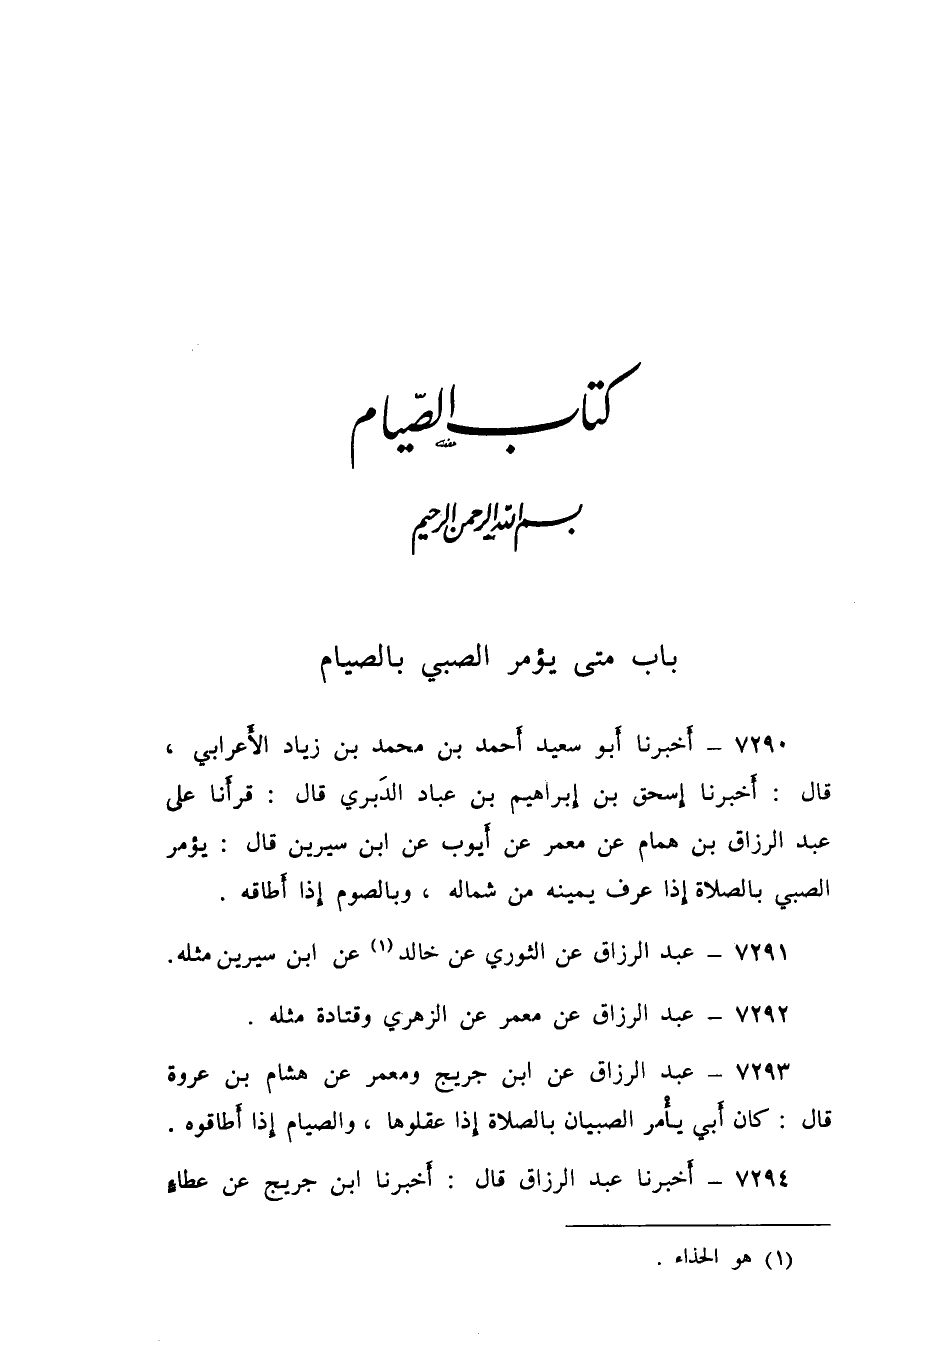 كتاب الصّيام
بسم الله الرحمن الرحيم
باب متى يؤمر الصبي بالصيام
٧٢٩٠ – أخبرنا أبو سعيد أحمد بن محمد بن زياد الأعرابي ،
قال : أخبرنا إسحق بن إبراهيم بن عباد الدَبري قال : قرأنا على
عبد الرزاق بن همام عن معمر عن أيوب عن ابن سيرين قال : يؤمر
الصبي بالصلاة إذا عرف يمينه من شماله ، وبالصوم إذا أطاقه .
٧٢٩١ – عبد الرزاق عن الثوري عن خالد (١) عن ابن سيرين مثله.
٧٢٩٢ – عبد الرزاق عن معمر عن الزهري وقتادة مثله .
٧٢٩٣ – عبد الرزاق عن ابن جريج ومعمر عن هشام بن عروة
قال : كان أبي يأمُر الصبيان بالصلاة إذا عقلوها ، والصيام إذا أطاقوه .
٧٢٩٤ – أخبرنا عبد الرزاق قال : أخبرنا ابن جريج عن عطاءٍ
(١) هو الحذاء .